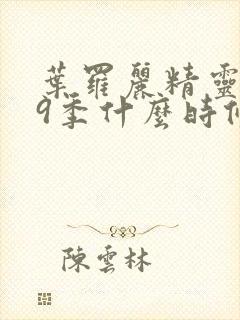 葉羅麗精靈
9季什麼時
陳雲林